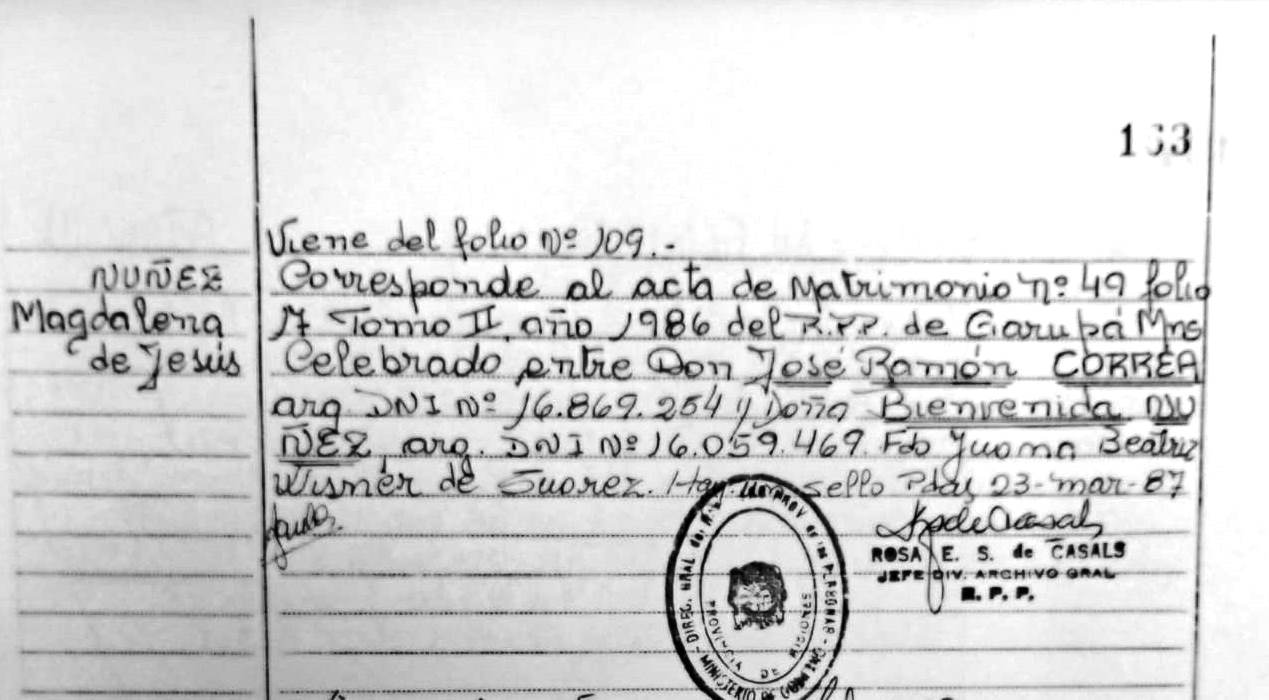 163
Viene del folio Nº 109.-
NUÑEZ
Magdalena
de Jesús
Corresponde al acta de Matrimonio nº 49 folio
17 Tomo II, año 1986 del R.P.P. de Garupá Mns
Celebrado entre Don José Ramón CORREA
arg. DNI Nº 16.869.254 y Doña Bienvenida NU
ÑEZ, arg. DNI Nº 16.059.469. Fdo Juana Beatriz
Wisner de Suarez. Hay un sello Pdas 23-mar-87
ROSA E. S. de CASALS
JEFE DIV. ARCHIVO GRAL
R. P. P.
DIREC. GRAL del
PROVINCIA DE MISIONES
MINISTERIO DE GOBIERNO